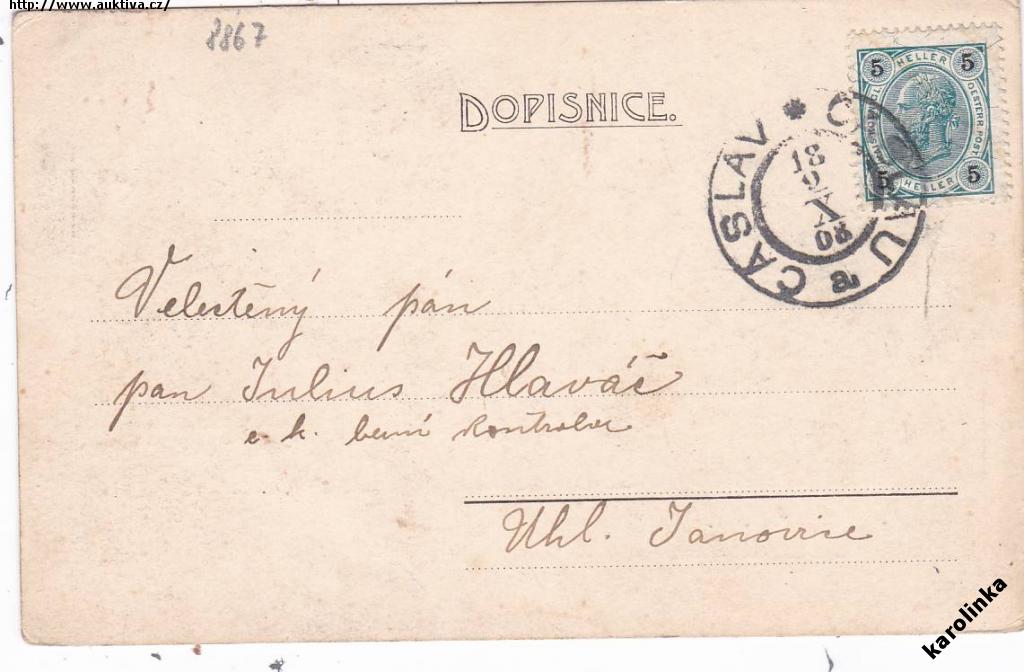 http://www.auktiva.cz/
8867
DOPISNICE.
5 HELLER 5
OESTERR. POST
5 HELLER 5
CASLAV a
18
X
08
Velectěný pán
pan Julius Hlaváč
c. k. berní kontrolor
Uhl. Janovice
karolinka